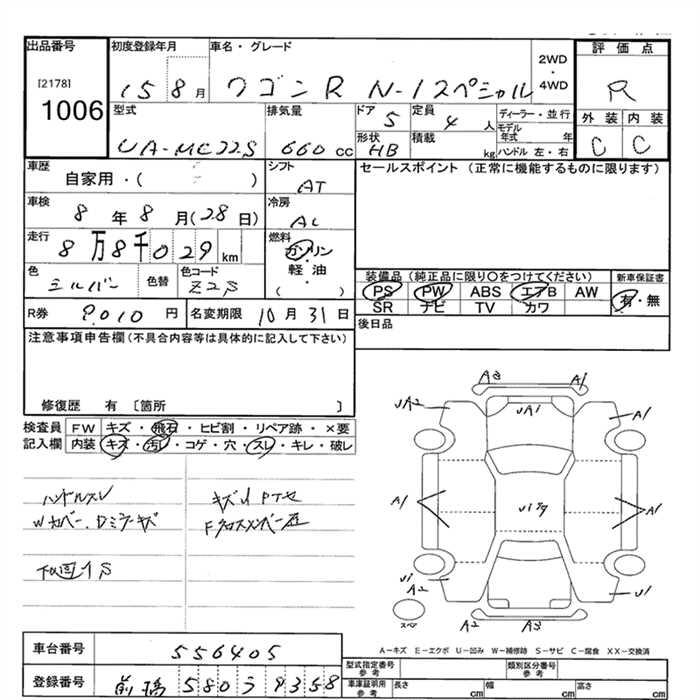 出品番号 初度登録年月 車名・グレード 評価点
[2178] 1006
15 8月 ワゴンR N-1スペシャル 2WD・4WD R
型式 排気量 ドア 定員 ディーラー・並行 外装 内装
UA-MC22S 660cc 5 4人 モデル年式 年 C C
形状 HB 積載 kg ハンドル 左・右
車歴 シフト セールスポイント (正常に機能するものに限ります)
自家用・( ) AT
車検 8年8月(28日) 冷房 AC
走行 8万8千029km 燃料 ガソリン・軽油 ( )
色 シルバー 色替 色コード Z2S
装備品 (純正品に限り○をつけてください) 新車保証書
PS PW ABS エアB AW 有・無
SR ナビ TV カワ
R券 9,010円 名変期限 10月31日 後日品
注意事項申告欄(不具合内容等は具体的に記入して下さい)
修復歴 有 〔箇所 〕
検査員 FW キズ・飛石・ヒビ割・リペア跡・×要
記入欄 内装 キズ・汚レ・コゲ・穴・スレ・キレ・破レ
ハンドルスレ
Wカバー、Dミラーキズ
下回りS
A3 A1
UA2 UA1 A1
A1 A1
U1 A2 U1
A2 A2
スペア
A-キズ E-エクボ U-凹み W-補修跡 S-サビ C-腐食 XX-交換済
車台番号 556405
型式指定番号 参考 類別区分番号 参考
登録番号 前橋 580 う 9358
車庫証明用 参考 長さ cm 幅 cm 高さ cm